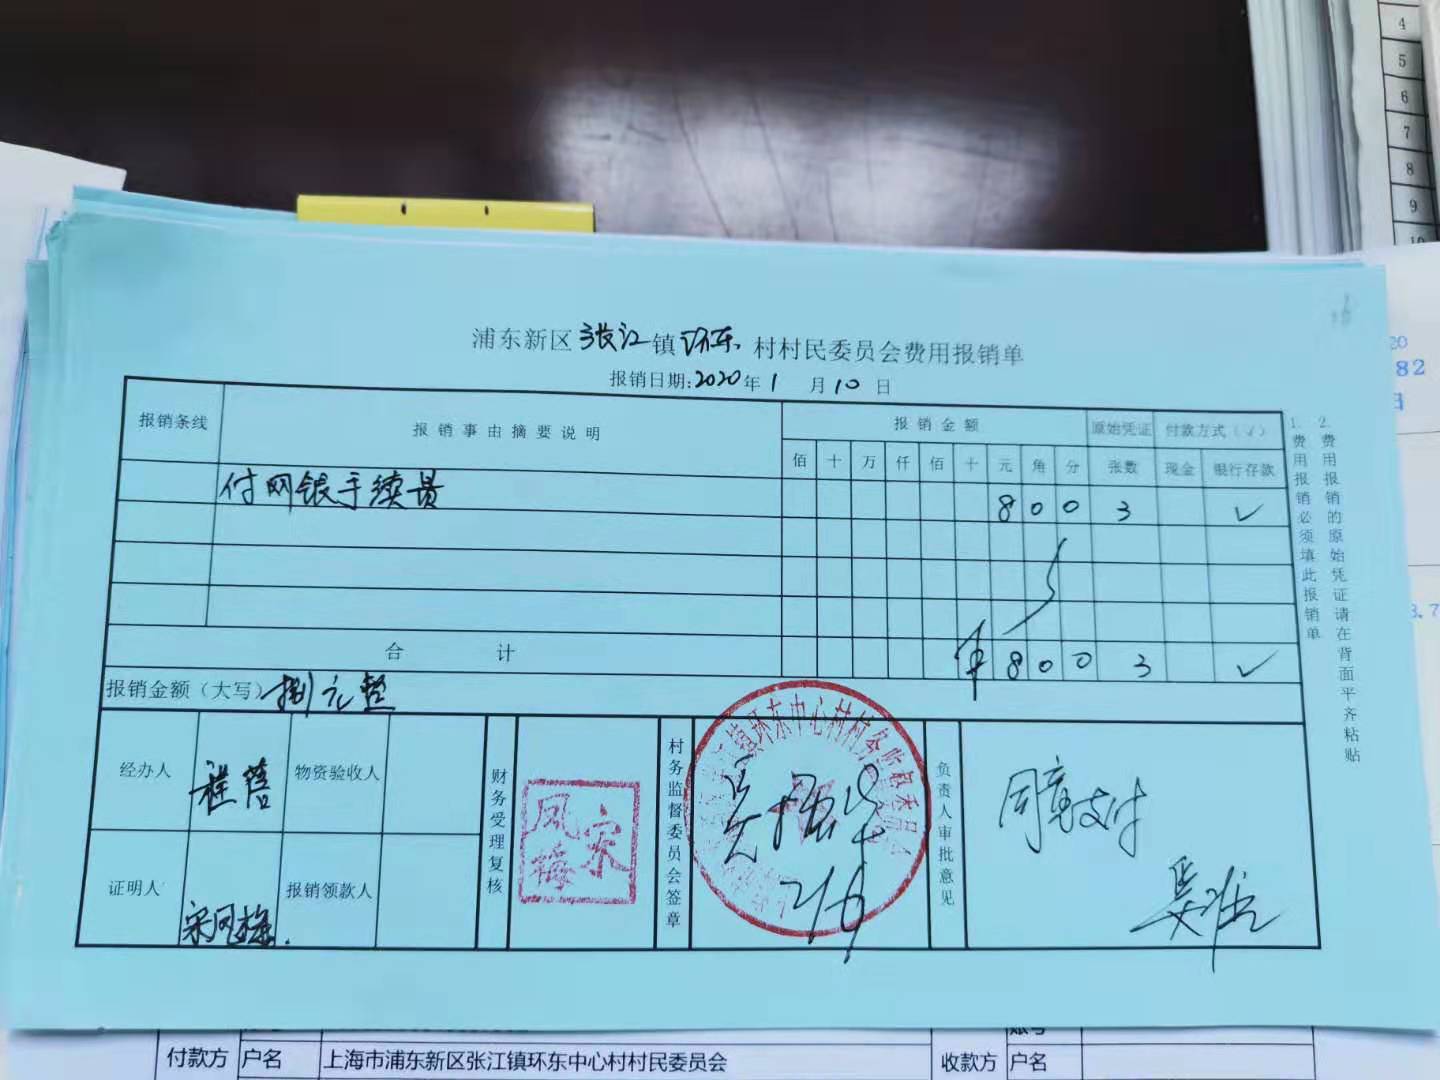 4
5
6
7
8
9
10
20
82
日
3.7
浦东新区张江镇环东村村民委员会费用报销单
报销日期:2020年1月10日
报销条线 报销事由摘要说明 报销金额 原始凭证 付款方式(√)
佰 十 万 仟 佰 十 元 角 分 张数 现金 银行存款
付网银手续费 8 0 0 3 √
合计 ¥ 8 0 0 3 √
报销金额(大写) 捌元整
经办人 物资验收人
证明人 宋凤梅 报销领款人
财务受理复核
宋凤梅
村务监督委员会签章
镇环东中心村村务监督委员会
2/6
负责人审批意见
同意支付
1.费用报销必须填此报销单
2.费用报销的原始凭证请在背面平齐粘贴
账号
付款方 户名 上海市浦东新区张江镇环东中心村村民委员会 收款方 户名